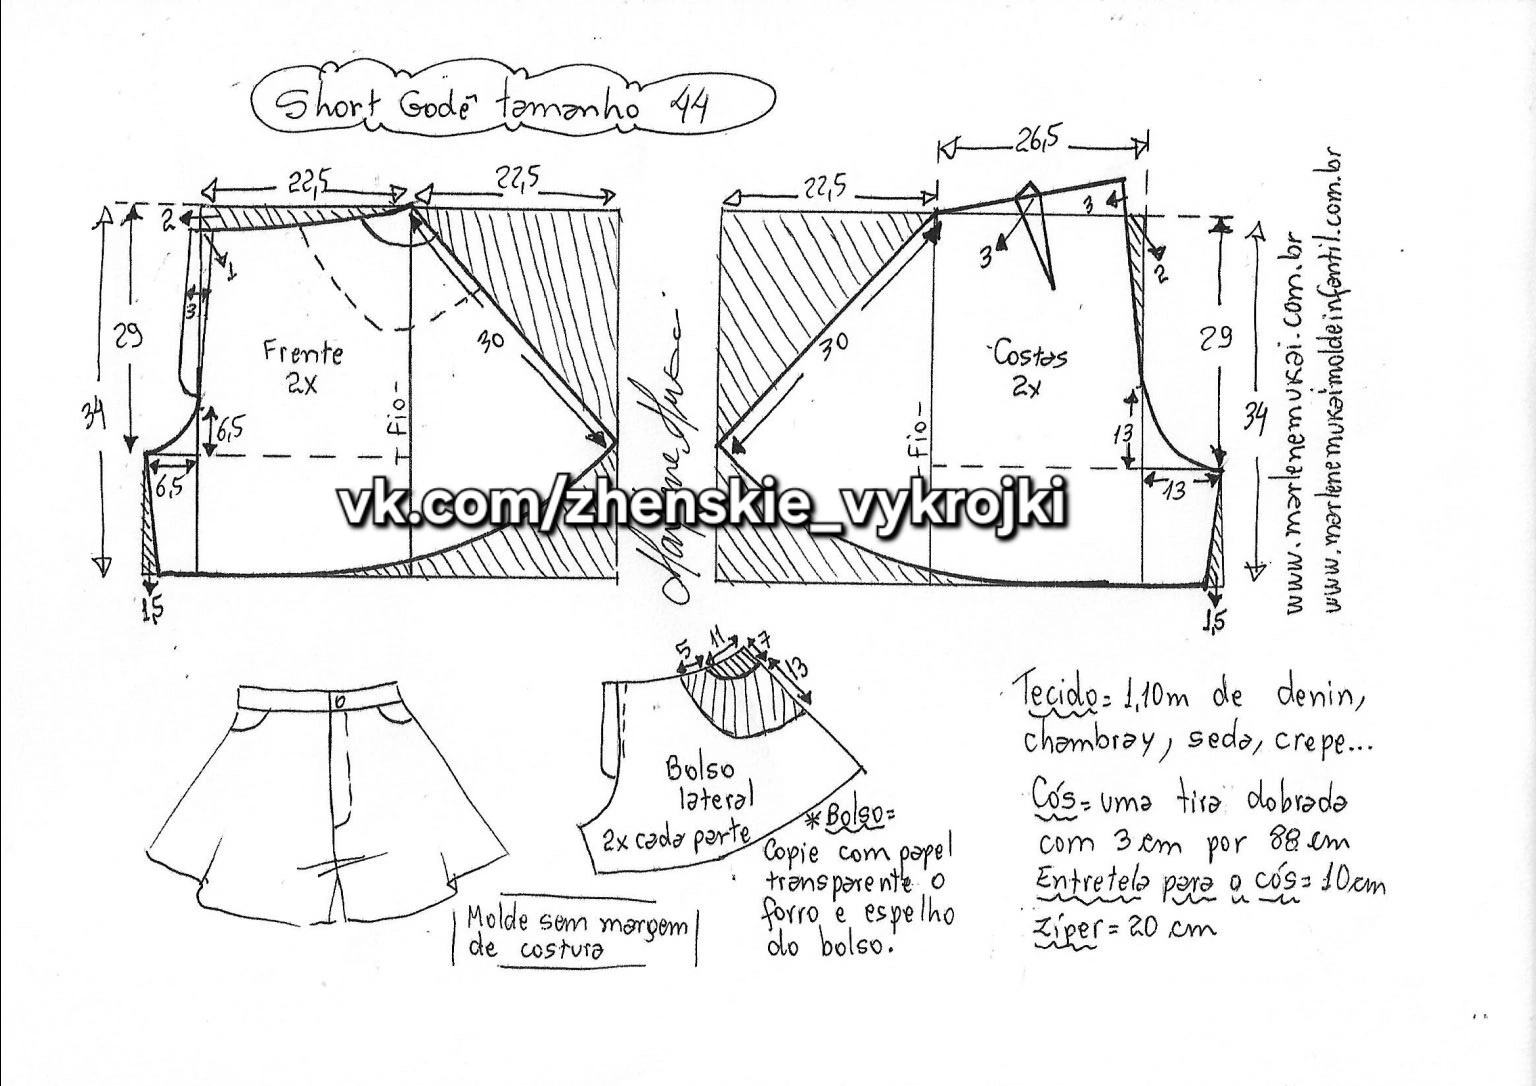 Short Godê tamanho 44
26,5
22,5
22,5
22,5
2
1
3
29
34
Frente
2x
30
Fio
6,5
6,5
1,5
3
3
2
30
Costas
2x
Fio
29
34
13
13
1,5
www.marlenemukai.com.br
www.marlenemukaimoldeinfantil.com.br
vk.com/zhenskie_vykrojki
5
11
7
13
Bolso
lateral
2x cada parte
*Bolso=
Copie com papel
transparente o
forro e espelho
do bolso.
Molde sem margem
de costura
Tecido= 1,10m de denin,
chambray, seda, crepe...
Cós= uma tira dobrada
com 3 cm por 88 cm
Entretela para o cós= 10cm
zíper= 20 cm